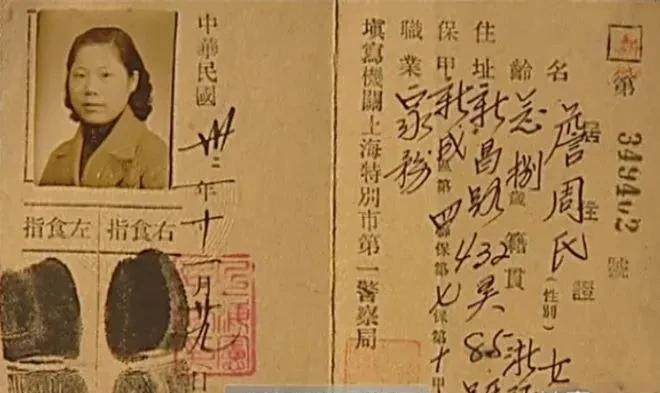 第 349462 號
居住證
名 詹周氏 (性別) 女
齡 念捌歲 籍貫 浙
住址 新昌路432弄85號
保甲 新成區第四聯保第七保第十甲
職業 家務
填寫機關上海特別市第一警察局
中華民國卅二年十一月廿九日
右食指
左食指